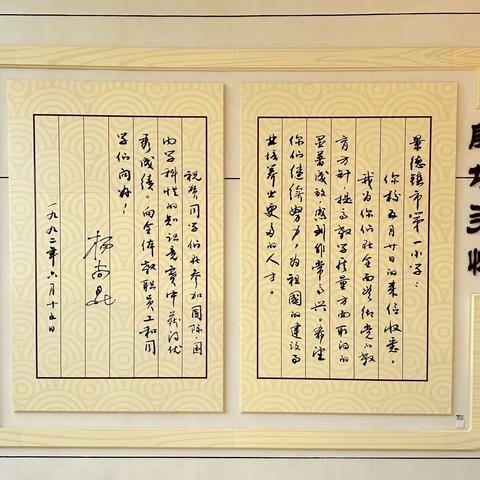 景德镇市第一小学：
你校五月廿日的来信收悉。
我为你们在全面贯彻党的教
育方针，提高教学质量方面取得的
显著成效，感到非常高兴。希望
你们继续努力，为祖国的建设事
业培养出更多的人才。
祝贺同学们在参加国际、国
内学科性的知识竞赛中获得优
秀成绩。向全体教职员工和同
学们问好！
杨尚昆
一九九二年六月十五日